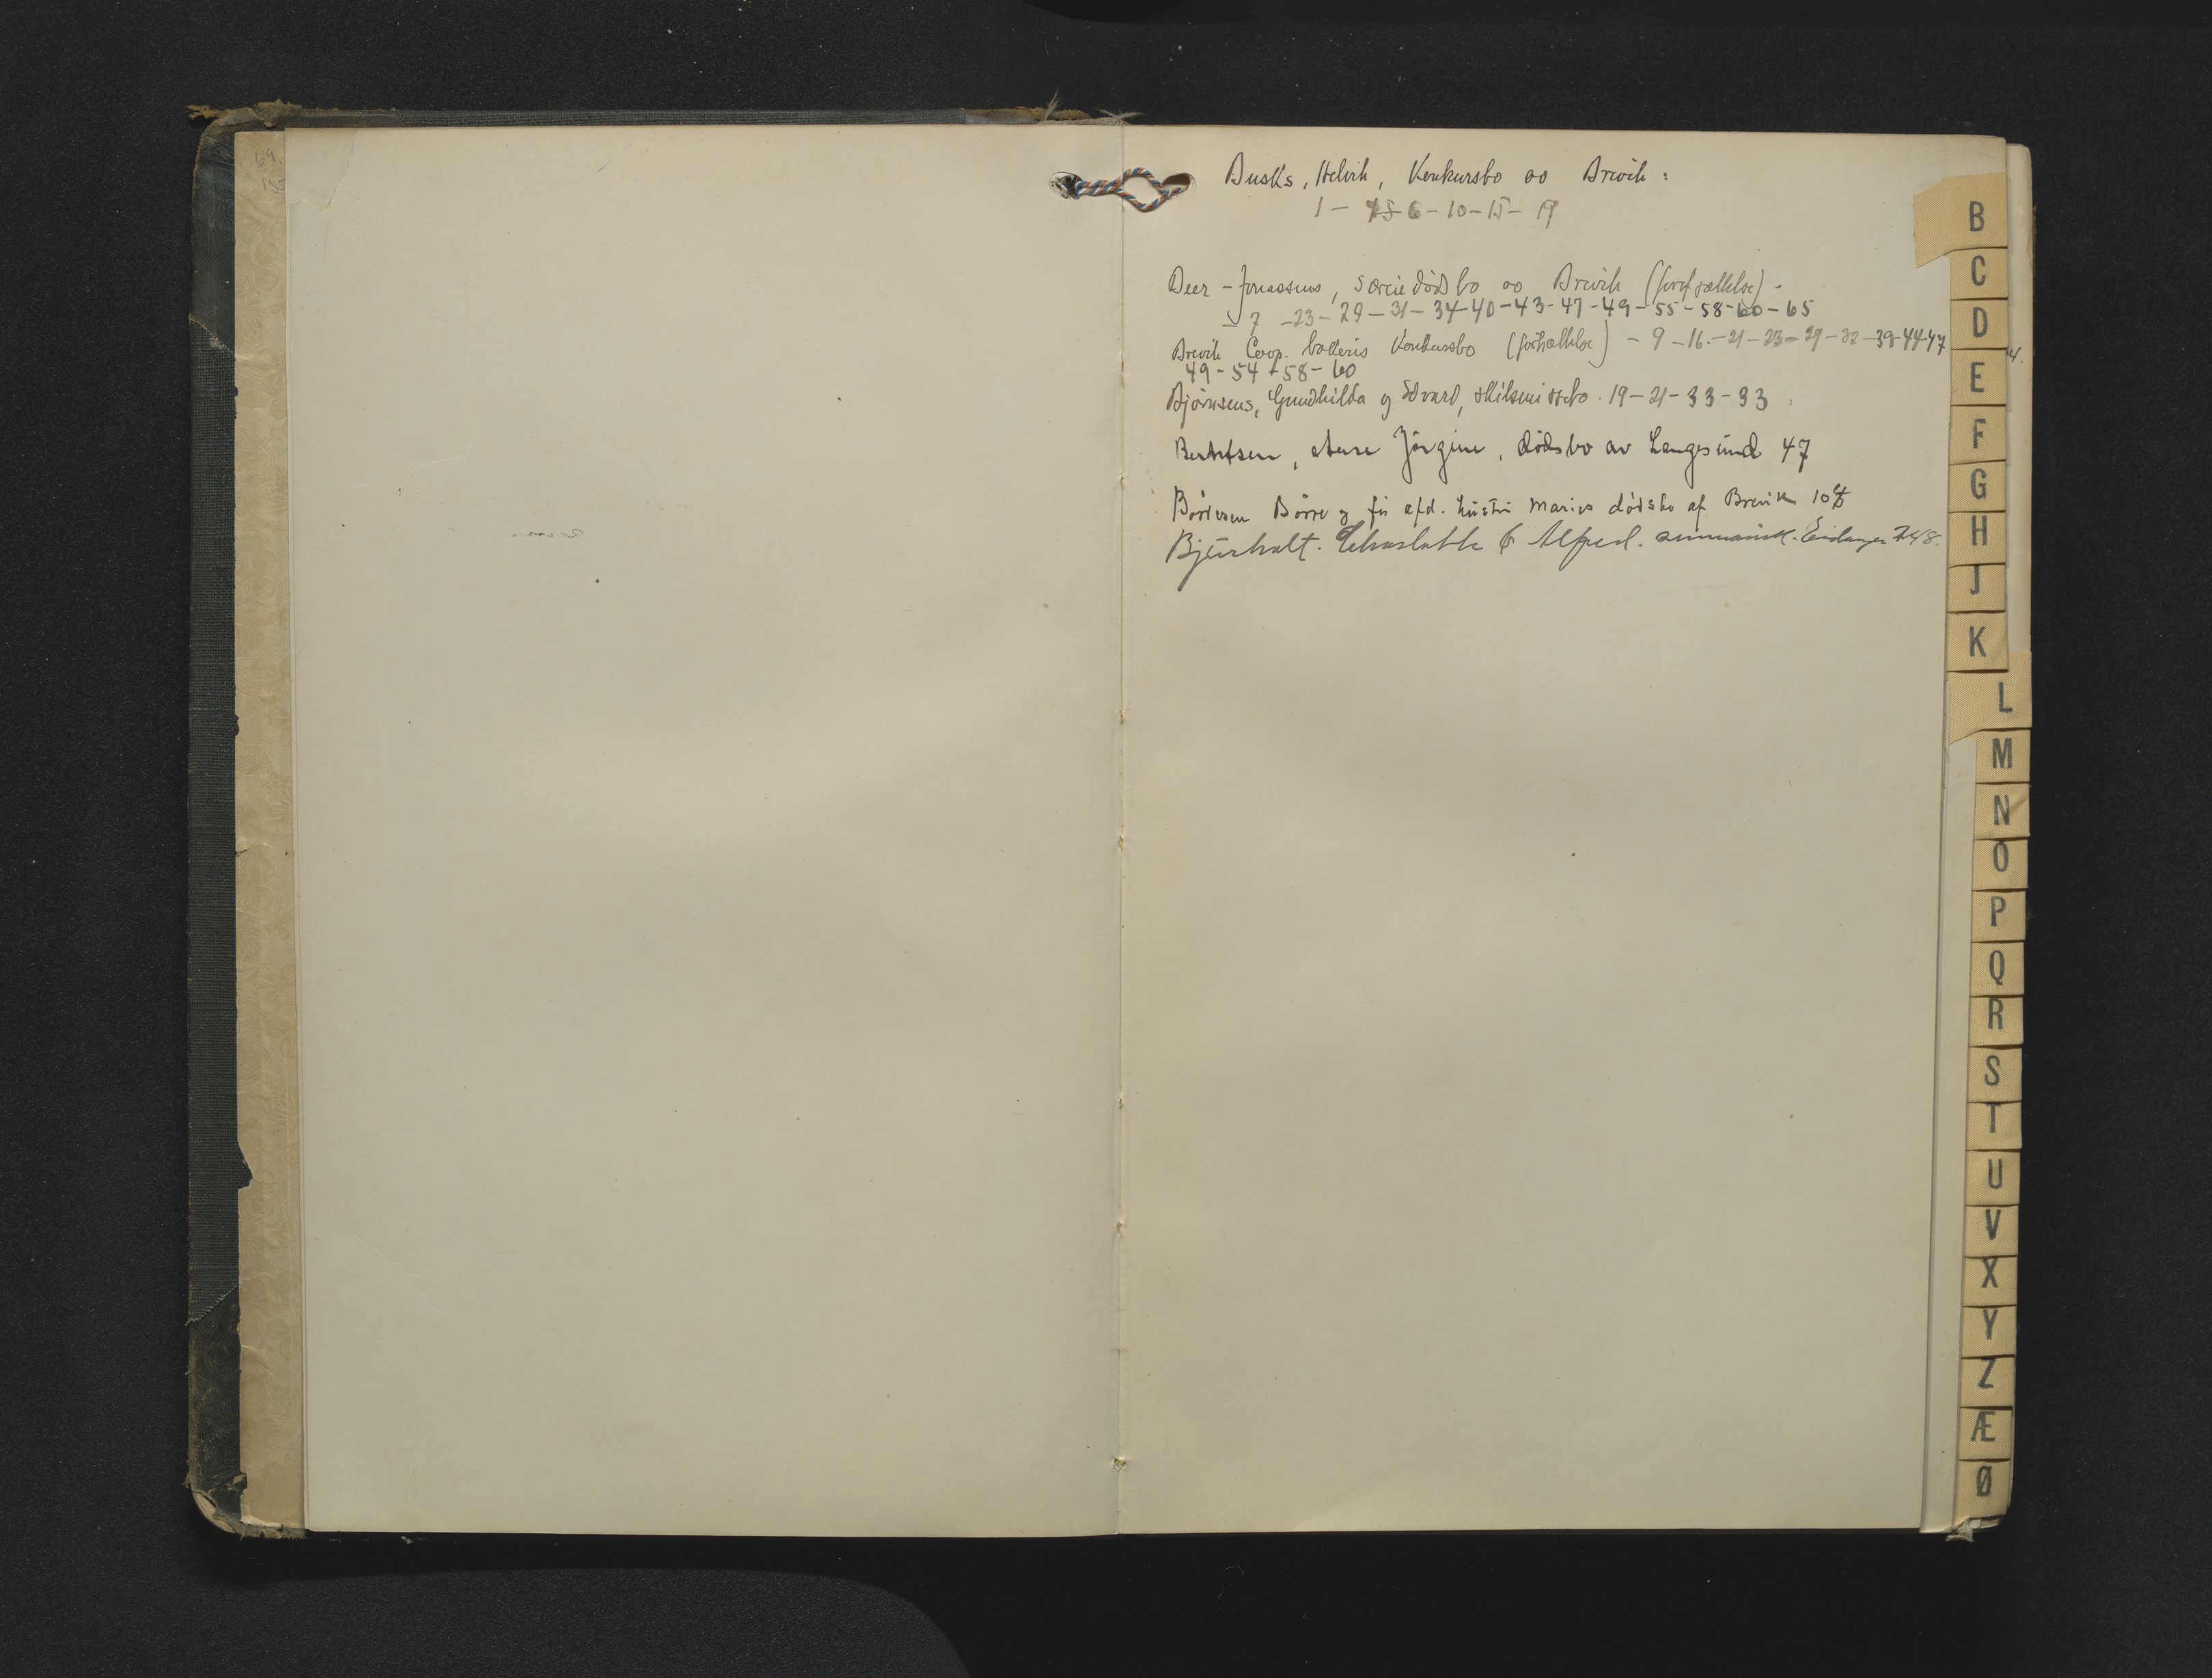 Busks, Helvik, Konkursbo av Brevik:
1 - 45 6 - 10 - 15 - 19
Beer - Jonassens, særeiedødsbo av Brevik
- 7 - 23 - 29 - 31 - 34 - 40 - 43 - 47 - 49 - 55 - 58 - 60 - 65
Brevik Coop. bakeris Konkursbo - 9 - 16 - 21 - 23 - 29 - 32 - 39 - 44 - 47
49 - 54 + 58 - 60
Bjørnsens, Gundhilda og Edvard, skilsmissebo. 19 - 21 - 33 - 33
Berntsen, Jörgine, dödsbo av Langesund 47
Börresen Börre og afd. hustru Maries dödsbo af Brevik
Bjerkholt. Alfred. Eidanger 248.
B
C
D
E
F
G
H
J
K
L
M
N
O
P
Q
R
S
T
U
V
X
Y
Z
Æ
Ø